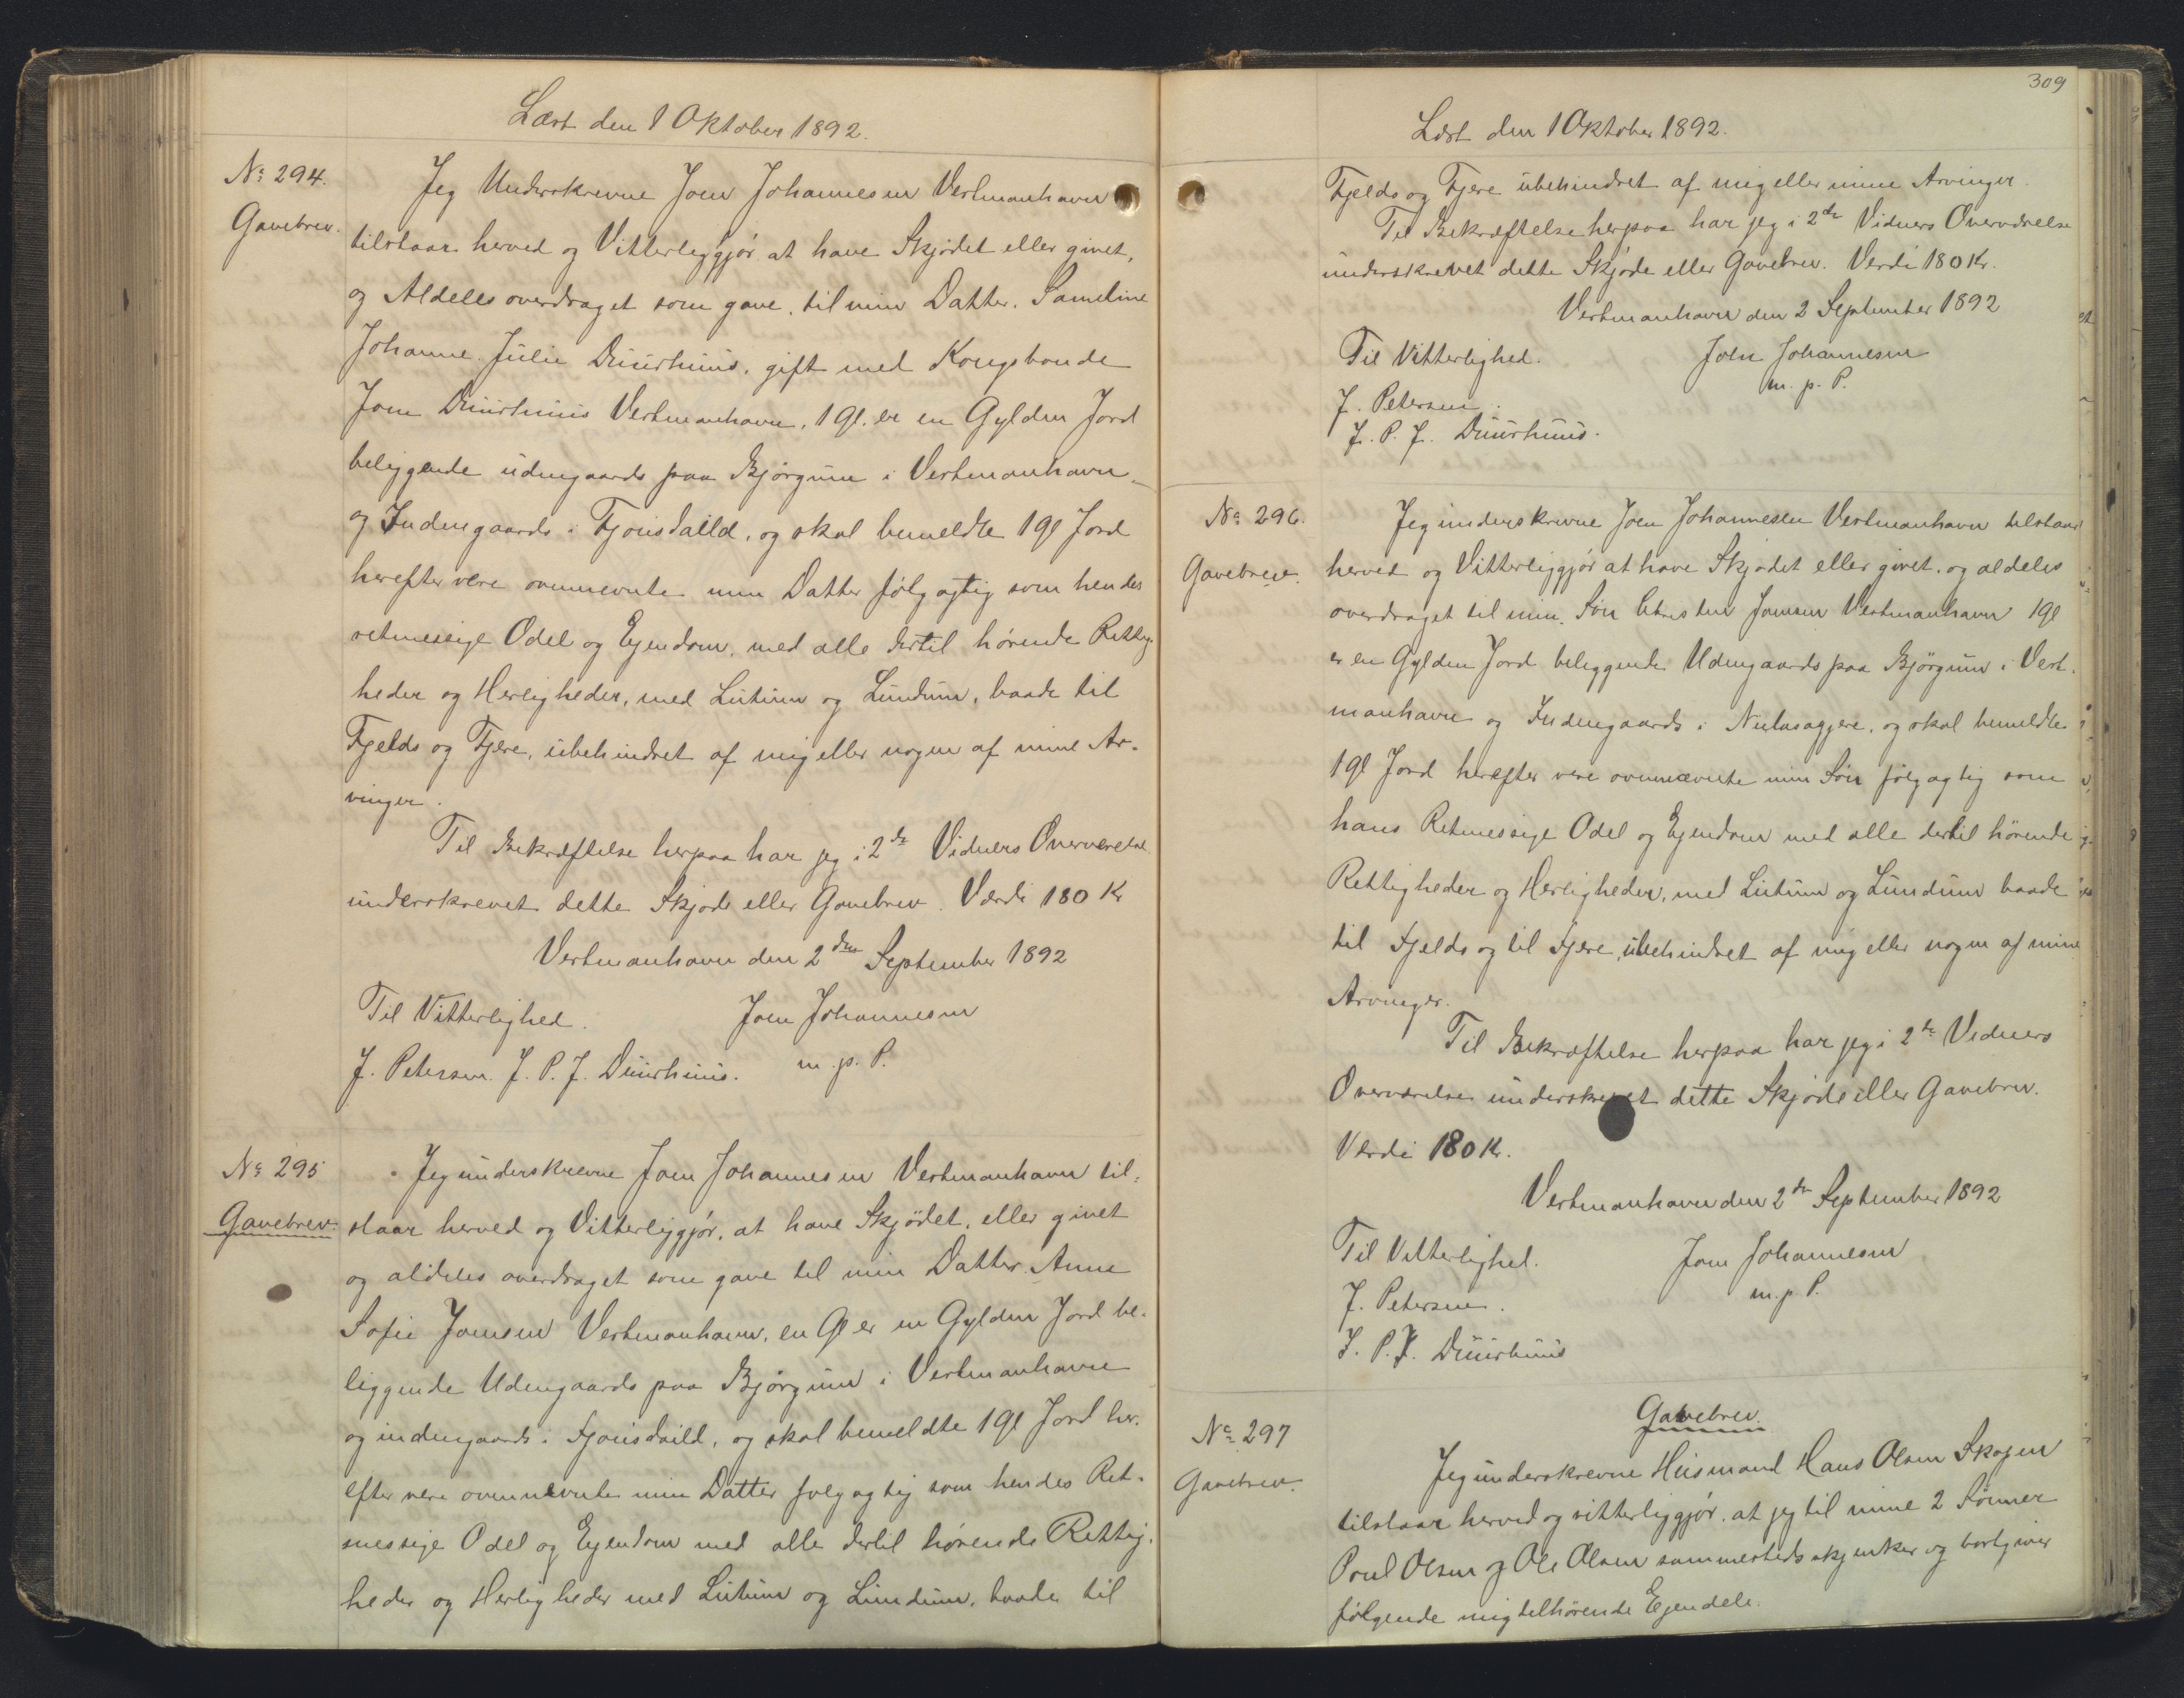 Læst den 1 Oktober 1892.
No 294.
Gavebrev.
Jeg Underskrevne Joen Johannesen Vestmanhavn
tilstaar herved og Vitterliggjør at have Skjødet eller givet,
og Aldeles overdraget som gave, til min Datter, Sameline
Johanne Julie Duurhuus, gift med Kongsbonde
Joen Duurhuus Vestmanhavn, 1 Gl. er en Gylden Jord
beliggende udengaards paa Bjørgum i Vestmanhavn
og Indengaards i Fjonsdaild, og skal bemeldte 1 Gl Jord
herefter være ovennevnte min Datter følgagtig som hendes
retmessige Odel og Ejendom, med alle dertil hørende Rettig-
heder og Herligheder, med Lutum og Lundum, baade til
Fjelds og Fjere, ubehindret af mig eller nogen af mine Ar-
vinger.
Til Bekræftelse herpaa har jeg i 2de Vidners Overværelse
underskrevet dette Skjøde eller Gavebrev. Værdi 180 Kr
Vestmanhavn den 2den September 1892
Til Vitterlighed. Joen Johannesen
J. Petersen. J. P. J. Duurhuus. m. p. P.
No 295
Gavebrev.
Jeg underskrevne Joen Johannesen Vestmanhavn til-
staar herved og Vitterliggjør, at have Skjödet, eller givet
og aldeles overdraget som gave til min Datter Anne
Sofie Joensen Vestmanhavn, en Gl er en Gylden Jord be-
liggende Udengaards paa Bjørgum i Vestmanhavn
og indengaards i Fjonsdaild, og skal bemeldte 1 Gl Jord her-
efter vere ovennevnte min Datter følgagtig som hendes Ret-
messige Odel og Ejendom med alle dertil hørende Rettig-
heder og Herligheder med Lutum og Lundum, baade til
309
Læst den 1 Oktober 1892.
Fjelds og Fjere ubehindret af mig eller mine Arvinger.
Til Bekræftelse herpaa har jeg i 2de Vidners Overværelse
underskrevet dette Skjøde eller Gavebrev. Verdi 180 Kr.
Vestmanhavn den 2 September 1892
Til Vitterlighed. Joen Johannesen
m. p. P.
J. Petersen.
J. P. J. Duurhuus.
No 296.
Gavebrev.
Jeg underskrevne Joen Johannesen Vestmanhavn tilstaar
herved og Vitterliggjør at have Skjødet eller givet, og aldeles
overdraget til min Søn Christen Joensen Vestmanhavn 1 Gl
er en Gylden Jord beliggende Udengaards paa Bjørgum i Vest-
manhavn og Indengaards i, og skal bemeldte
1 Gl Jord herefter vere ovennævnte min Søn følgagtig som
hans Retmessige Odel og Ejendom med alle dertil hörende
Rettigheder og Herligheder, med Lutum og Lundum baade
til Fjelds og til Fjere, ubehindret af mig eller nogen af mine
Arvinger.
Til Bekræftelse herpaa har jeg i 2de Vidners
Overværelse underskrevet dette Skjøde eller Gavebrev.
Verdi 180 Kr.
Vestmanhavn den 2den September 1892
Til Vitterlighed. Joen Johannesen
J. Petersen. m. p. P.
J. P. J. Duurhuus
No 297
Gavebrev.
Gavebrev.
Jeg underskrevne Husmand Hans Olsen Skogen
tilstaar herved og vitterliggjør, at jeg til mine 2 Sønner
Poul Olsen og Ole Olsen sammesteds skjenker og bortgiver
følgende mig tilhörende Ejendele.